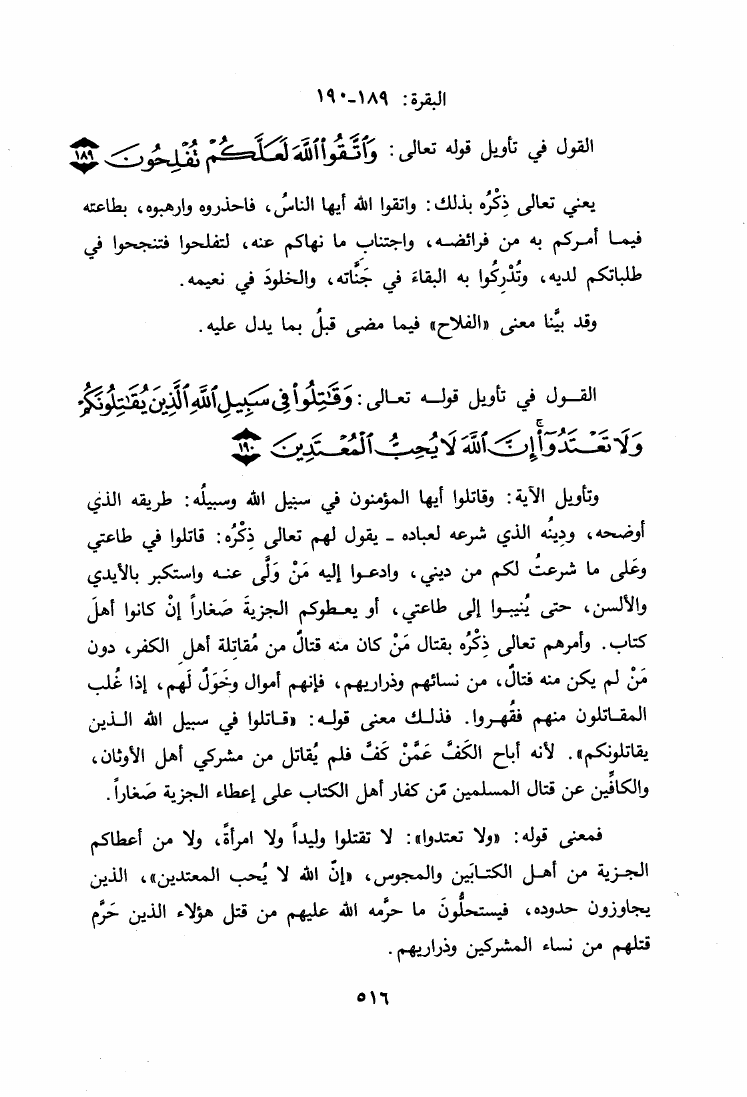 البقرة: ١٨٩-١٩٠
القول في تأويل قوله تعالى: وَٱتَّقُوا۟ ٱللَّهَ لَعَلَّكُمْ تُفْلِحُونَ ١٨٩
يعني تعالى ذِكْرُه بذلك: واتقوا الله أيها الناسُ، فاحذروه وارهبوه، بطاعته
فيما أمركم به من فرائضه، واجتناب ما نهاكم عنه، لتفلحوا فتنجحوا في
طلباتكم لديه، وتُدْرِكُوا به البقاءَ في جَنَّاته، والخلودَ في نعيمه.
وقد بيَّنا معنى «الفلاح» فيما مضى قبلُ بما يدل عليه.
القول في تأويل قوله تعالى: وَقَٰتِلُوا۟ فِى سَبِيلِ ٱللَّهِ ٱلَّذِينَ يُقَٰتِلُونَكُمْ
وَلَا تَعْتَدُوٓا۟ۚ إِنَّ ٱللَّهَ لَا يُحِبُّ ٱلْمُعْتَدِينَ ١٩٠
وتأويل الآية: وقاتلوا أيها المؤمنون في سبيل الله وسبيلُه: طريقه الذي
أوضحه، ودِينُه الذي شرعه لعباده - يقول لهم تعالى ذِكْرُه: قاتلوا في طاعتي
وعَلى ما شرعتُ لكم من ديني، وادعوا إليه مَنْ وَلَّى عنه واستكبر بالأيدي
والألسن، حتى يُنيبوا إلى طاعتي، أو يعطوكم الجزيةَ صَغاراً إنْ كانوا أهلَ
كتاب. وأمرهم تعالى ذِكْرُه بقتال مَنْ كان منه قتالٌ من مُقاتِلة أهل الكفر، دون
مَنْ لم يكن منه قتالٌ، من نسائهم وذراريهم، فإنهم أموال وخَوَلٌ لَهم، إذا غُلب
المقاتلون منهم فقُهروا. فذلك معنى قوله: «قاتلوا في سبيل الله الذين
يقاتلونكم». لأنه أباح الكَفَّ عَمَّنْ كَفَّ فلم يُقاتل من مشركي أهل الأوثان،
والكافِّين عن قتال المسلمين مّن كفار أهل الكتاب على إعطاء الجزية صَغاراً.
فمعنى قوله: «ولا تعتدوا»: لا تقتلوا وليداً ولا امرأةً، ولا من أعطاكم
الجزية من أهل الكتابَين والمجوس، «إنّ الله لا يُحب المعتدين»، الذين
يجاوزون حدوده، فيستحلُّونَ ما حرَّمه الله عليهم من قتل هؤلاء الذين حَرَّم
قتلهم من نساء المشركين وذراريهم.
٥١٦